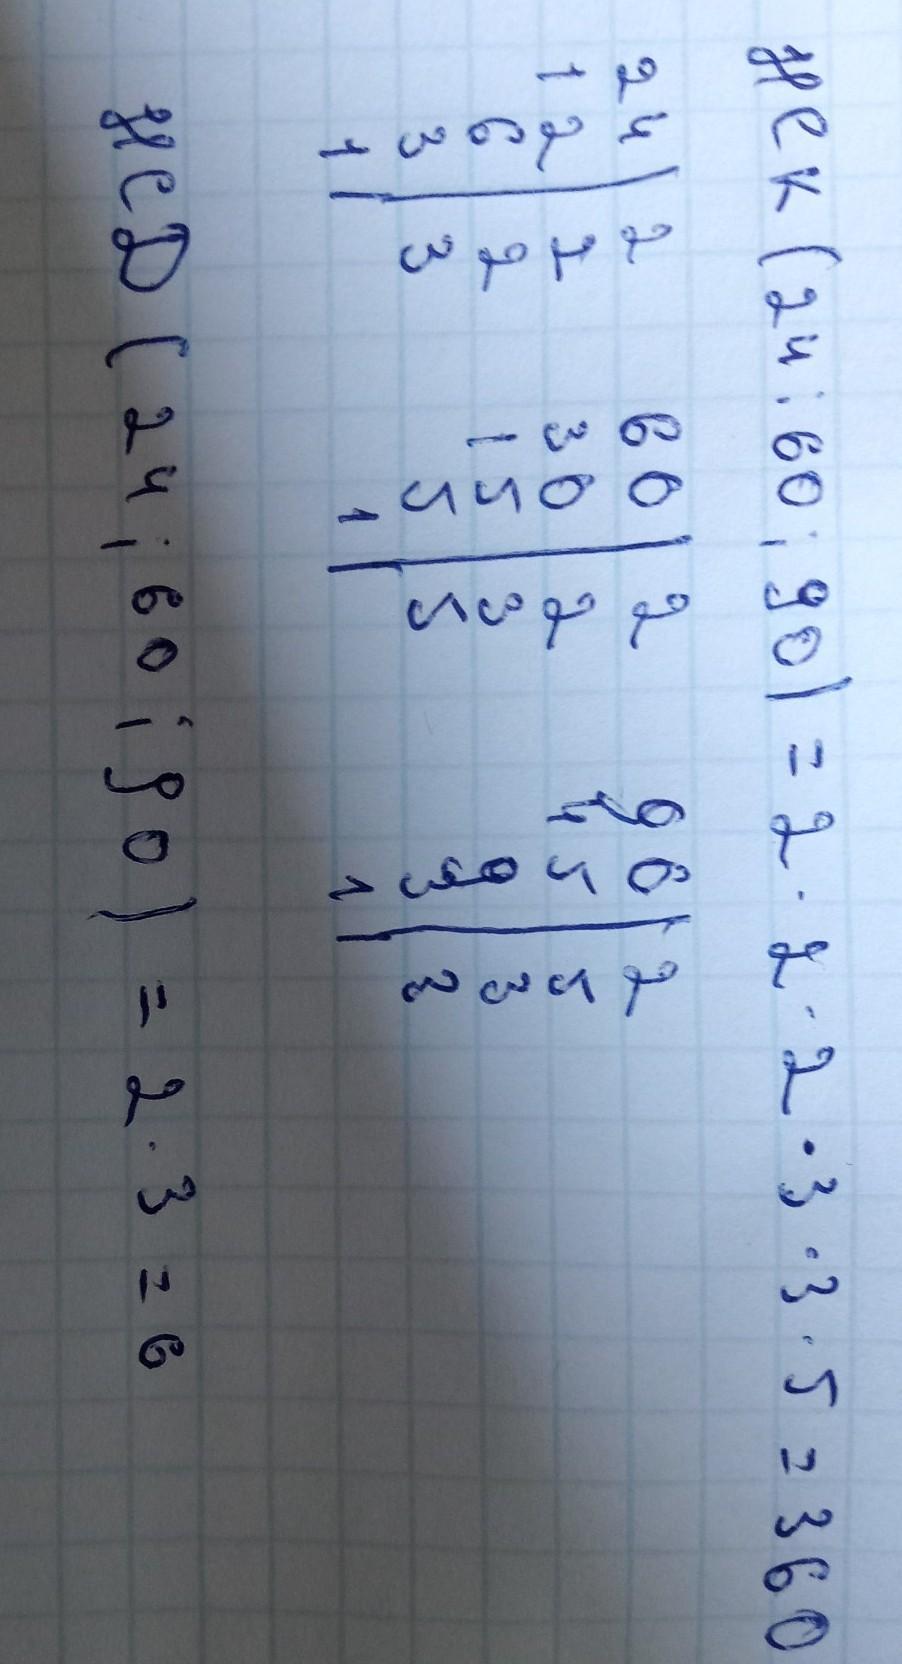 НСК (24; 60; 90) = 2 · 2 · 2 · 3 · 3 · 5 = 360
24 | 2 60 | 2 90 | 2
12 | 2 30 | 2 45 | 5
6 | 2 15 | 3 9 | 3
3 | 3 5 | 5 3 | 3
1 | 1 | 1 |
НСД (24; 60; 90) = 2 · 3 = 6